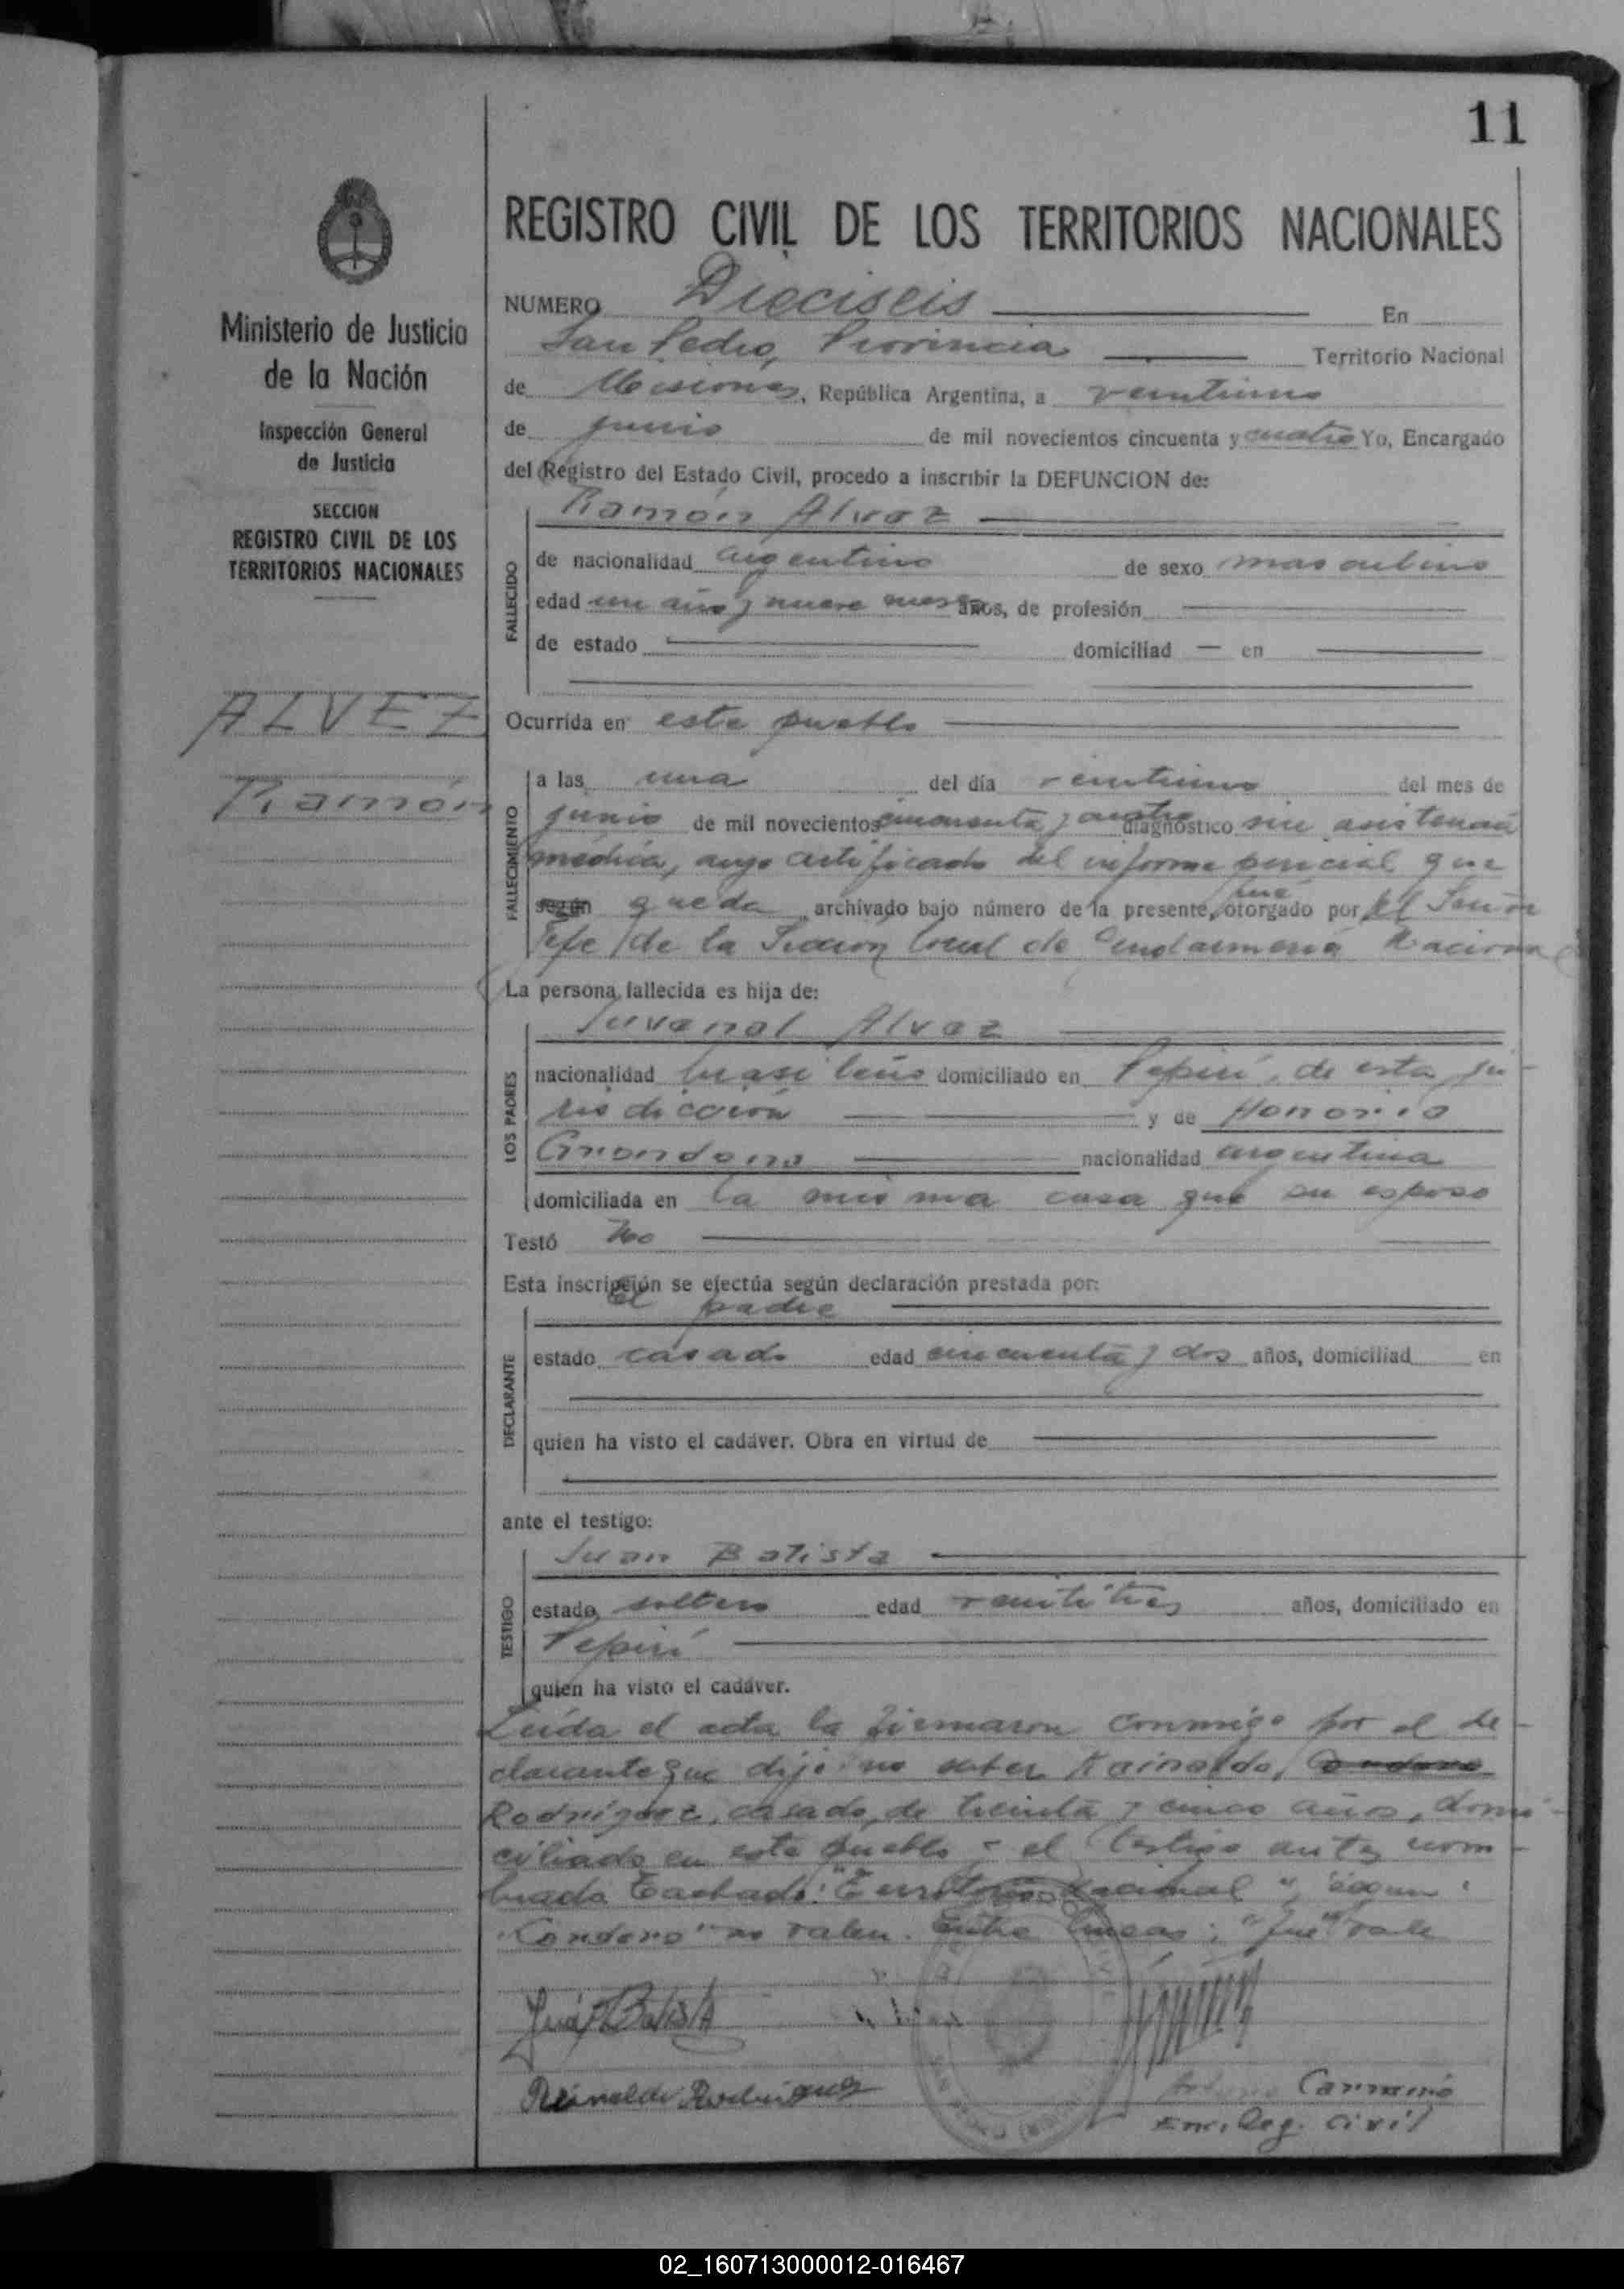 11
REGISTRO CIVIL DE LOS TERRITORIOS NACIONALES
Ministerio de Justicia
de la Nación
Inspección General
de Justicia
SECCION
REGISTRO CIVIL DE LOS
TERRITORIOS NACIONALES
ALVEZ
Ramón
NUMERO Dieciseis En
San Pedro, Provincia Territorio Nacional
de Misiones, República Argentina, a veintiuno
de junio de mil novecientos cincuenta y cuatro Yo, Encargado
del Registro del Estado Civil, procedo a inscribir la DEFUNCION de:
Ramón Alvez
FALLECIDO
de nacionalidad argentino de sexo masculino
edad un año y nueve meses años, de profesión
de estado domiciliad — en
Ocurrida en este pueblo
FALLECIMIENTO
a las una del día veintiuno del mes de
junio de mil novecientos cincuenta y cuatro diagnóstico sin asistencia
médica, cuyo certificado del informe pericial que
según queda archivado bajo número de la presente, fué otorgado por el Señor
Jefe de la Sección local de Gendarmeria Nacional
La persona fallecida es hija de:
LOS PADRES
Juvenal Alvez
nacionalidad brasileño domiciliado en Pepirí, de esta ju-
risdicción y de Honoria
nacionalidad argentina
domiciliada en la misma casa que su esposo
Testó No
Esta inscripción se efectúa según declaración prestada por:
el padre
DECLARANTE
estado casado edad cincuenta y dos años, domiciliad en
quien ha visto el cadáver. Obra en virtud de
ante el testigo:
TESTIGO
Juan Batista
estado soltero edad veintitres años, domiciliado en
Pepirí
quien ha visto el cadáver.
Leída el acta la firmaron conmigo por el de-
clarante que dijo no saber Reinaldo,
Rodríguez, casado, de treinta y cinco años, domi-
ciliado en este pueblo y el testigo antes nom-
brado Tachado: "Territorio Nacional", "según"
"Condero" no valen. Entre líneas: "fué" vale
Juan Batista
Reinaldo Rodriguez
Carmine
Enc. Reg. Civil
02_160713000012-016467